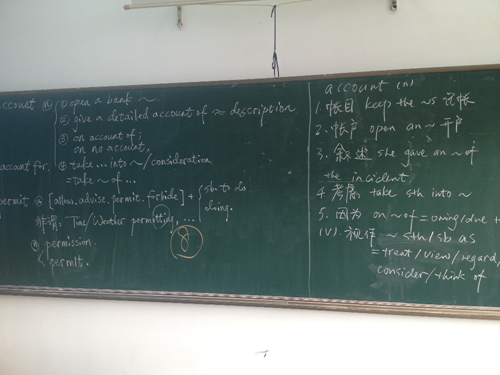 account n. ① open a bank ~
② give a detailed account of ≈ description
③ on account of;
on no account;
account for. ④ take ... into ~/consideration
= take ~ of ...
permit v. [allow, advise, permit, forbid] + { sb to do
doing.
Time/Weather permitting, ....
n. permission.
permit.
8
account (n)
1. 帐目 keep the ~s 记帐
2. 帐户 open an ~ 开户
3. 叙述 she gave an ~ of
the incident
4. 考虑 take sth into ~
5. 因为 on ~ of = owing/due t
(V). 视作 ~ sth/sb as
= treat/view/regard/
consider/think of